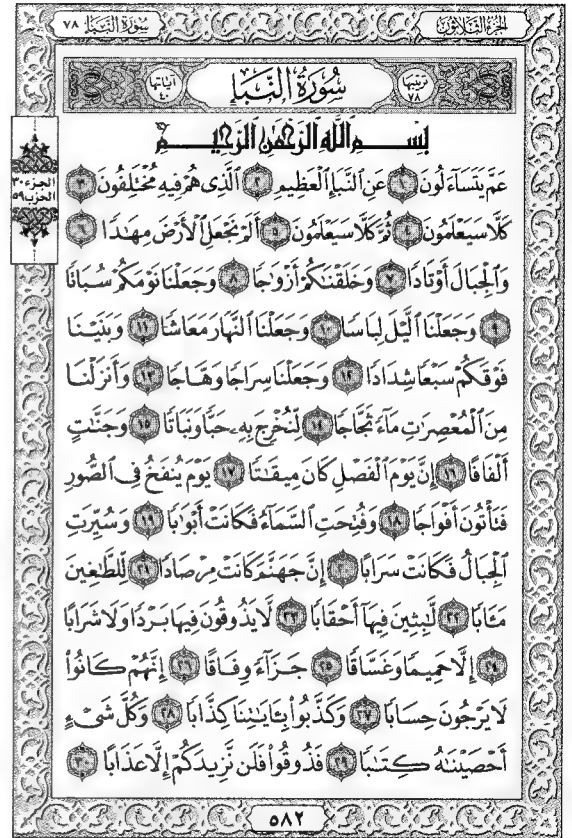 سورة النبإ ٧٨
الجزء الثلاثون
ترتيبها ٧٨
سُورَةُ النَّبَإِ
آياتها ٤٠
بِسْمِ اللَّهِ الرَّحْمَٰنِ الرَّحِيمِ
الجزء ٣٠
الحزب ٥٩
عَمَّ يَتَسَآءَلُونَ ١ عَنِ ٱلنَّبَإِ ٱلْعَظِيمِ ٢ ٱلَّذِى هُمْ فِيهِ مُخْتَلِفُونَ ٣
كَلَّا سَيَعْلَمُونَ ٤ ثُمَّ كَلَّا سَيَعْلَمُونَ ٥ أَلَمْ نَجْعَلِ ٱلْأَرْضَ مِهَٰدًا ٦
وَٱلْجِبَالَ أَوْتَادًا ٧ وَخَلَقْنَٰكُمْ أَزْوَٰجًا ٨ وَجَعَلْنَا نَوْمَكُمْ سُبَاتًا
٩ وَجَعَلْنَا ٱلَّيْلَ لِبَاسًا ١٠ وَجَعَلْنَا ٱلنَّهَارَ مَعَاشًا ١١ وَبَنَيْنَا
فَوْقَكُمْ سَبْعًا شِدَادًا ١٢ وَجَعَلْنَا سِرَاجًا وَهَّاجًا ١٣ وَأَنزَلْنَا
مِنَ ٱلْمُعْصِرَٰتِ مَآءً ثَجَّاجًا ١٤ لِّنُخْرِجَ بِهِۦ حَبًّا وَنَبَاتًا ١٥ وَجَنَّٰتٍ
أَلْفَافًا ١٦ إِنَّ يَوْمَ ٱلْفَصْلِ كَانَ مِيقَٰتًا ١٧ يَوْمَ يُنفَخُ فِى ٱلصُّورِ
فَتَأْتُونَ أَفْوَاجًا ١٨ وَفُتِحَتِ ٱلسَّمَآءُ فَكَانَتْ أَبْوَٰبًا ١٩ وَسُيِّرَتِ
ٱلْجِبَالُ فَكَانَتْ سَرَابًا ٢٠ إِنَّ جَهَنَّمَ كَانَتْ مِرْصَادًا ٢١ لِّلطَّٰغِينَ
مَـَٔابًا ٢٢ لَّٰبِثِينَ فِيهَآ أَحْقَابًا ٢٣ لَّا يَذُوقُونَ فِيهَا بَرْدًا وَلَا شَرَابًا
٢٤ إِلَّا حَمِيمًا وَغَسَّاقًا ٢٥ جَزَآءً وِفَاقًا ٢٦ إِنَّهُمْ كَانُوا۟
لَا يَرْجُونَ حِسَابًا ٢٧ وَكَذَّبُوا۟ بِـَٔايَٰتِنَا كِذَّابًا ٢٨ وَكُلَّ شَىْءٍ
أَحْصَيْنَٰهُ كِتَٰبًا ٢٩ فَذُوقُوا۟ فَلَن نَّزِيدَكُمْ إِلَّا عَذَابًا ٣٠
٥٨٢